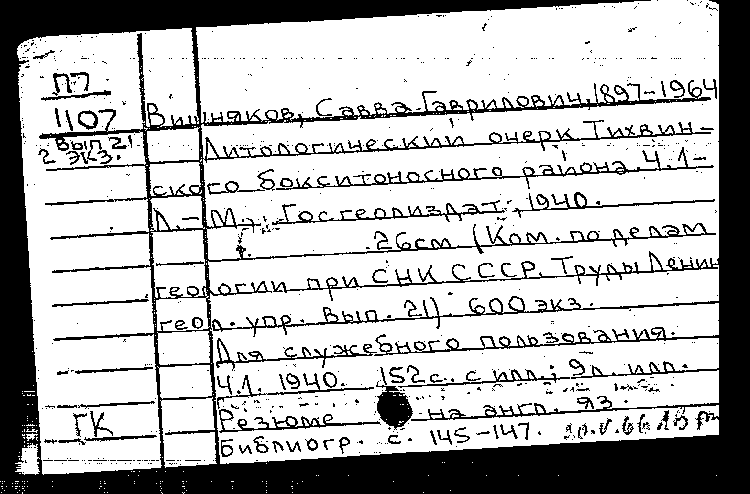 ПП
1107
Вып 21
2 экз.
Вишняков, Савва Гаврилович, 1897-1964
Литологический очерк Тихвин-
ского бокситоносного района. Ч.1-
Л.-М., Госгеолиздат, 1940.
т. 26см (Ком. по делам
геологии при СНК СССР. Труды Ленин
геол. упр. Вып. 21). 600 экз.
Для служебного пользования.
Ч.1. 1940. 152с. с илл.; 9л. илл.
Резюме на англ. яз.
Библиогр. с. 145-147.
ГК